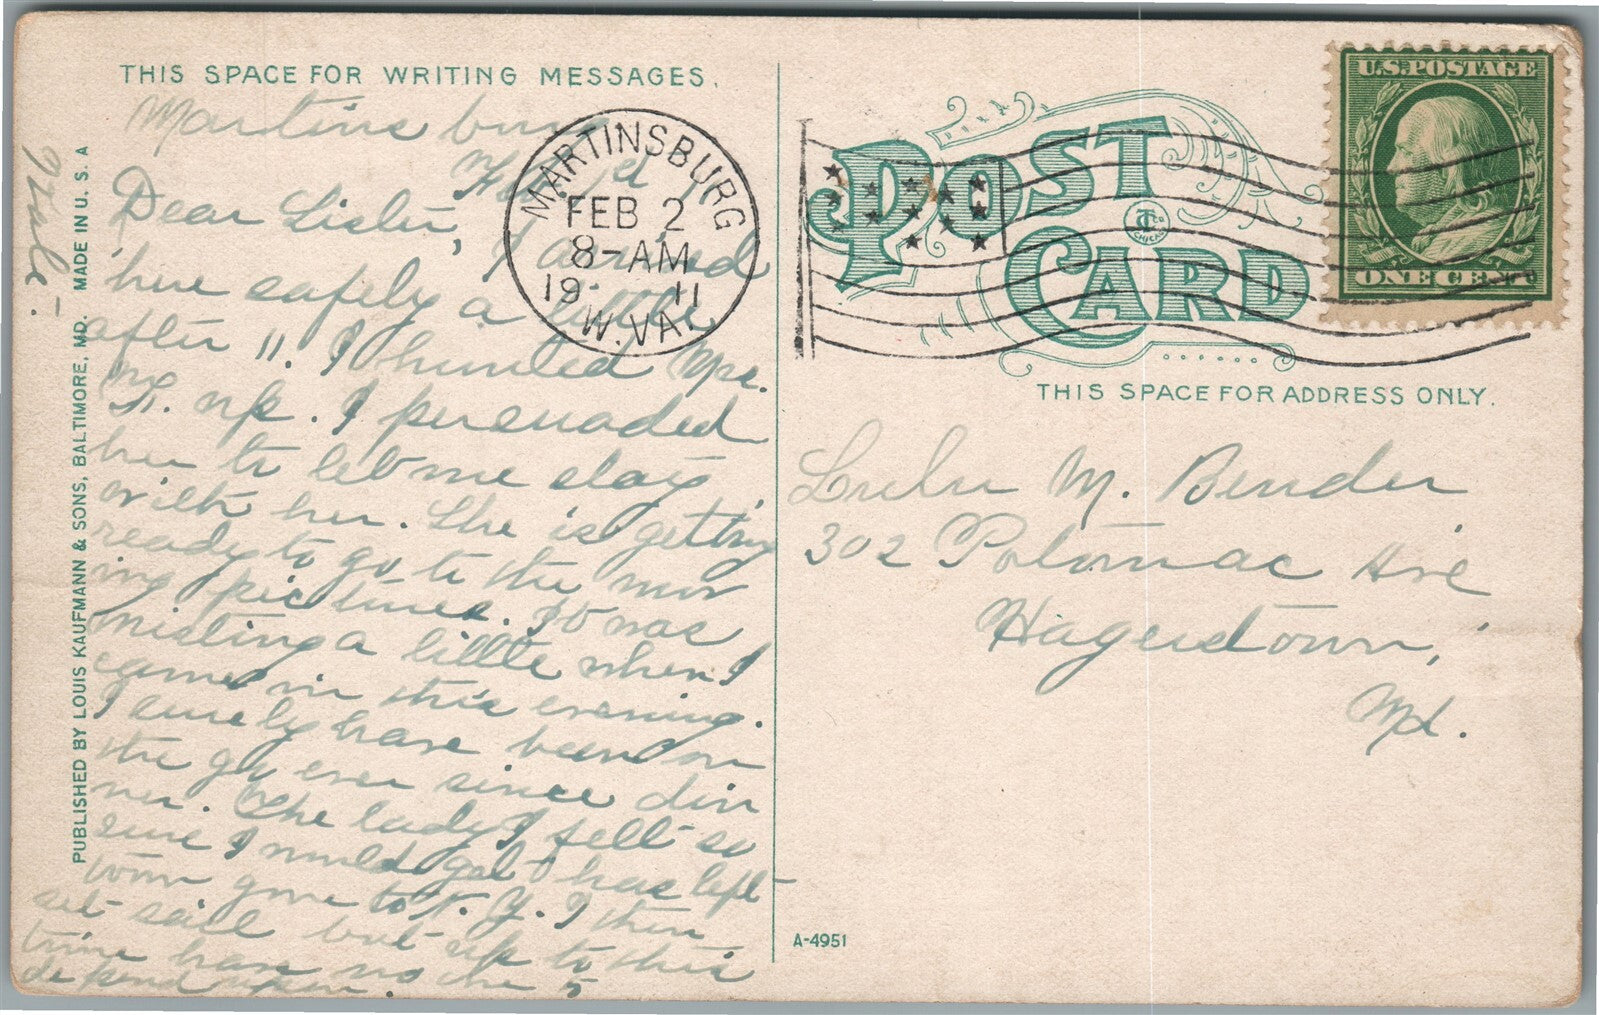 THIS SPACE FOR WRITING MESSAGES.
Martinsburg
Dear Sister, I arrived
here safely a little
after 11. I hunted Mrs.
up. I persuaded
her to let me stay
with her. She is getting
ready to go to the mov
ing pictures. It was
misting a little when I
came in this evening.
I surely have been on
the go ever since din
ner. The lady I felt so
sure I would get has left
town gone to N. Y. I then
set sail but up to this
time have no one to
depend upon.
PUBLISHED BY LOUIS KAUFMANN & SONS, BALTIMORE, MD. MADE IN U. S. A
MARTINSBURG
FEB 2
8-AM
19 11
W.VA.
POST CARD
U.S. POSTAGE
ONE CENT
THIS SPACE FOR ADDRESS ONLY.
Lulu M. Bender
302 Potomac Ave
Hagerstown,
Md.
A-4951